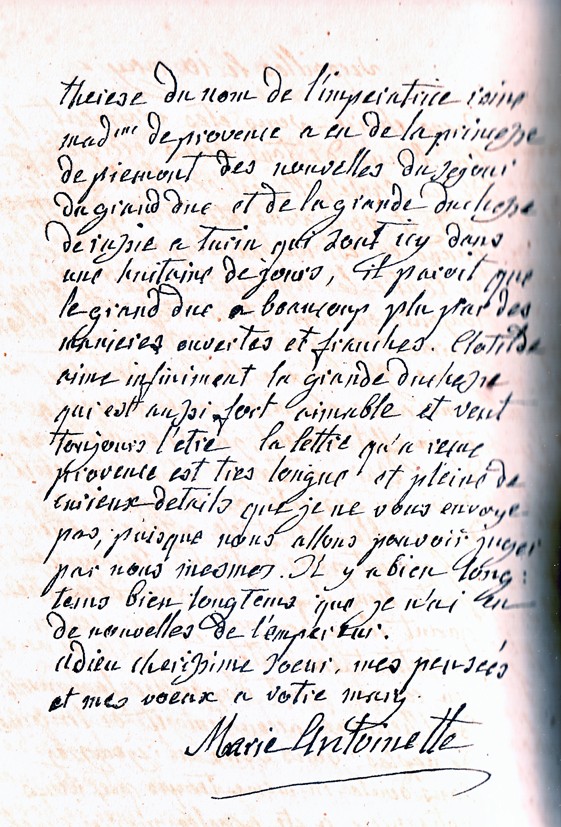 therese du nom de l'imperatrice reine
mad^me de provence a eu de la princesse
de piemont des nouvelles du sejour
du grand duc et de la grande duchesse
de russie a turin qui sont icy dans
une huitaine de jours, il paroit que
le grand duc a beaucoup plu par des
manieres ouvertes et franches. Clotilde
aime infiniment la grande duchesse
qui est aussi fort aimable et veut
toujours l'etre la lettre qu'a reçue
provence est tres longue et pleine de
curieux details que je ne vous envoye
pas, puisque nous allons pouvoir juger
par nous mesmes. Il y a bien long:
tems bien longtems que je n'ai eu
de nouvelles de l'empereur.
adieu cherissime soeur, mes pensées
et mes voeux a votre mary.
Marie Antoinette